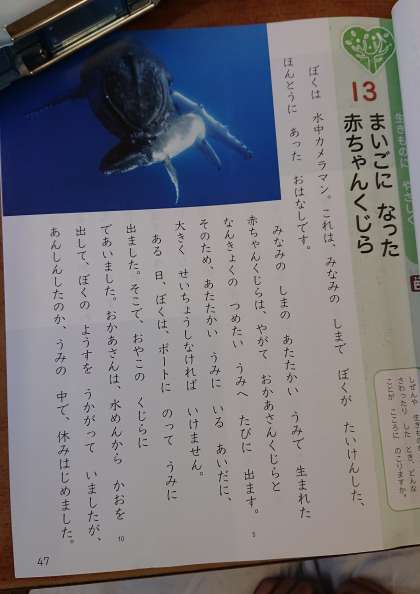 生きものに やさしく
13
まいごに なった
赤ちゃんくじら
しぜんや 生きも
さわったり した とき、どんな
ことが こころに のこりますか。
ぼくは 水中カメラマン。これは、みなみの しまで ぼくが たいけんした、
ほんとうに あった おはなしです。
みなみの しまの あたたかい うみで 生まれた
赤ちゃんくじらは、やがて おかあさんくじらと
なんきょくの つめたい うみへ たびに 出ます。
そのため、あたたかい うみに いる あいだに、
大きく せいちょうしなければ いけません。
ある 日、ぼくは、ボートに のって うみに
出ました。そこで、おやこの くじらに
であいました。おかあさんは、水めんから かおを
出して、ぼくの ようすを うかがって いましたが、
あんしんしたのか、うみの 中で、休みはじめました。
5
10
47